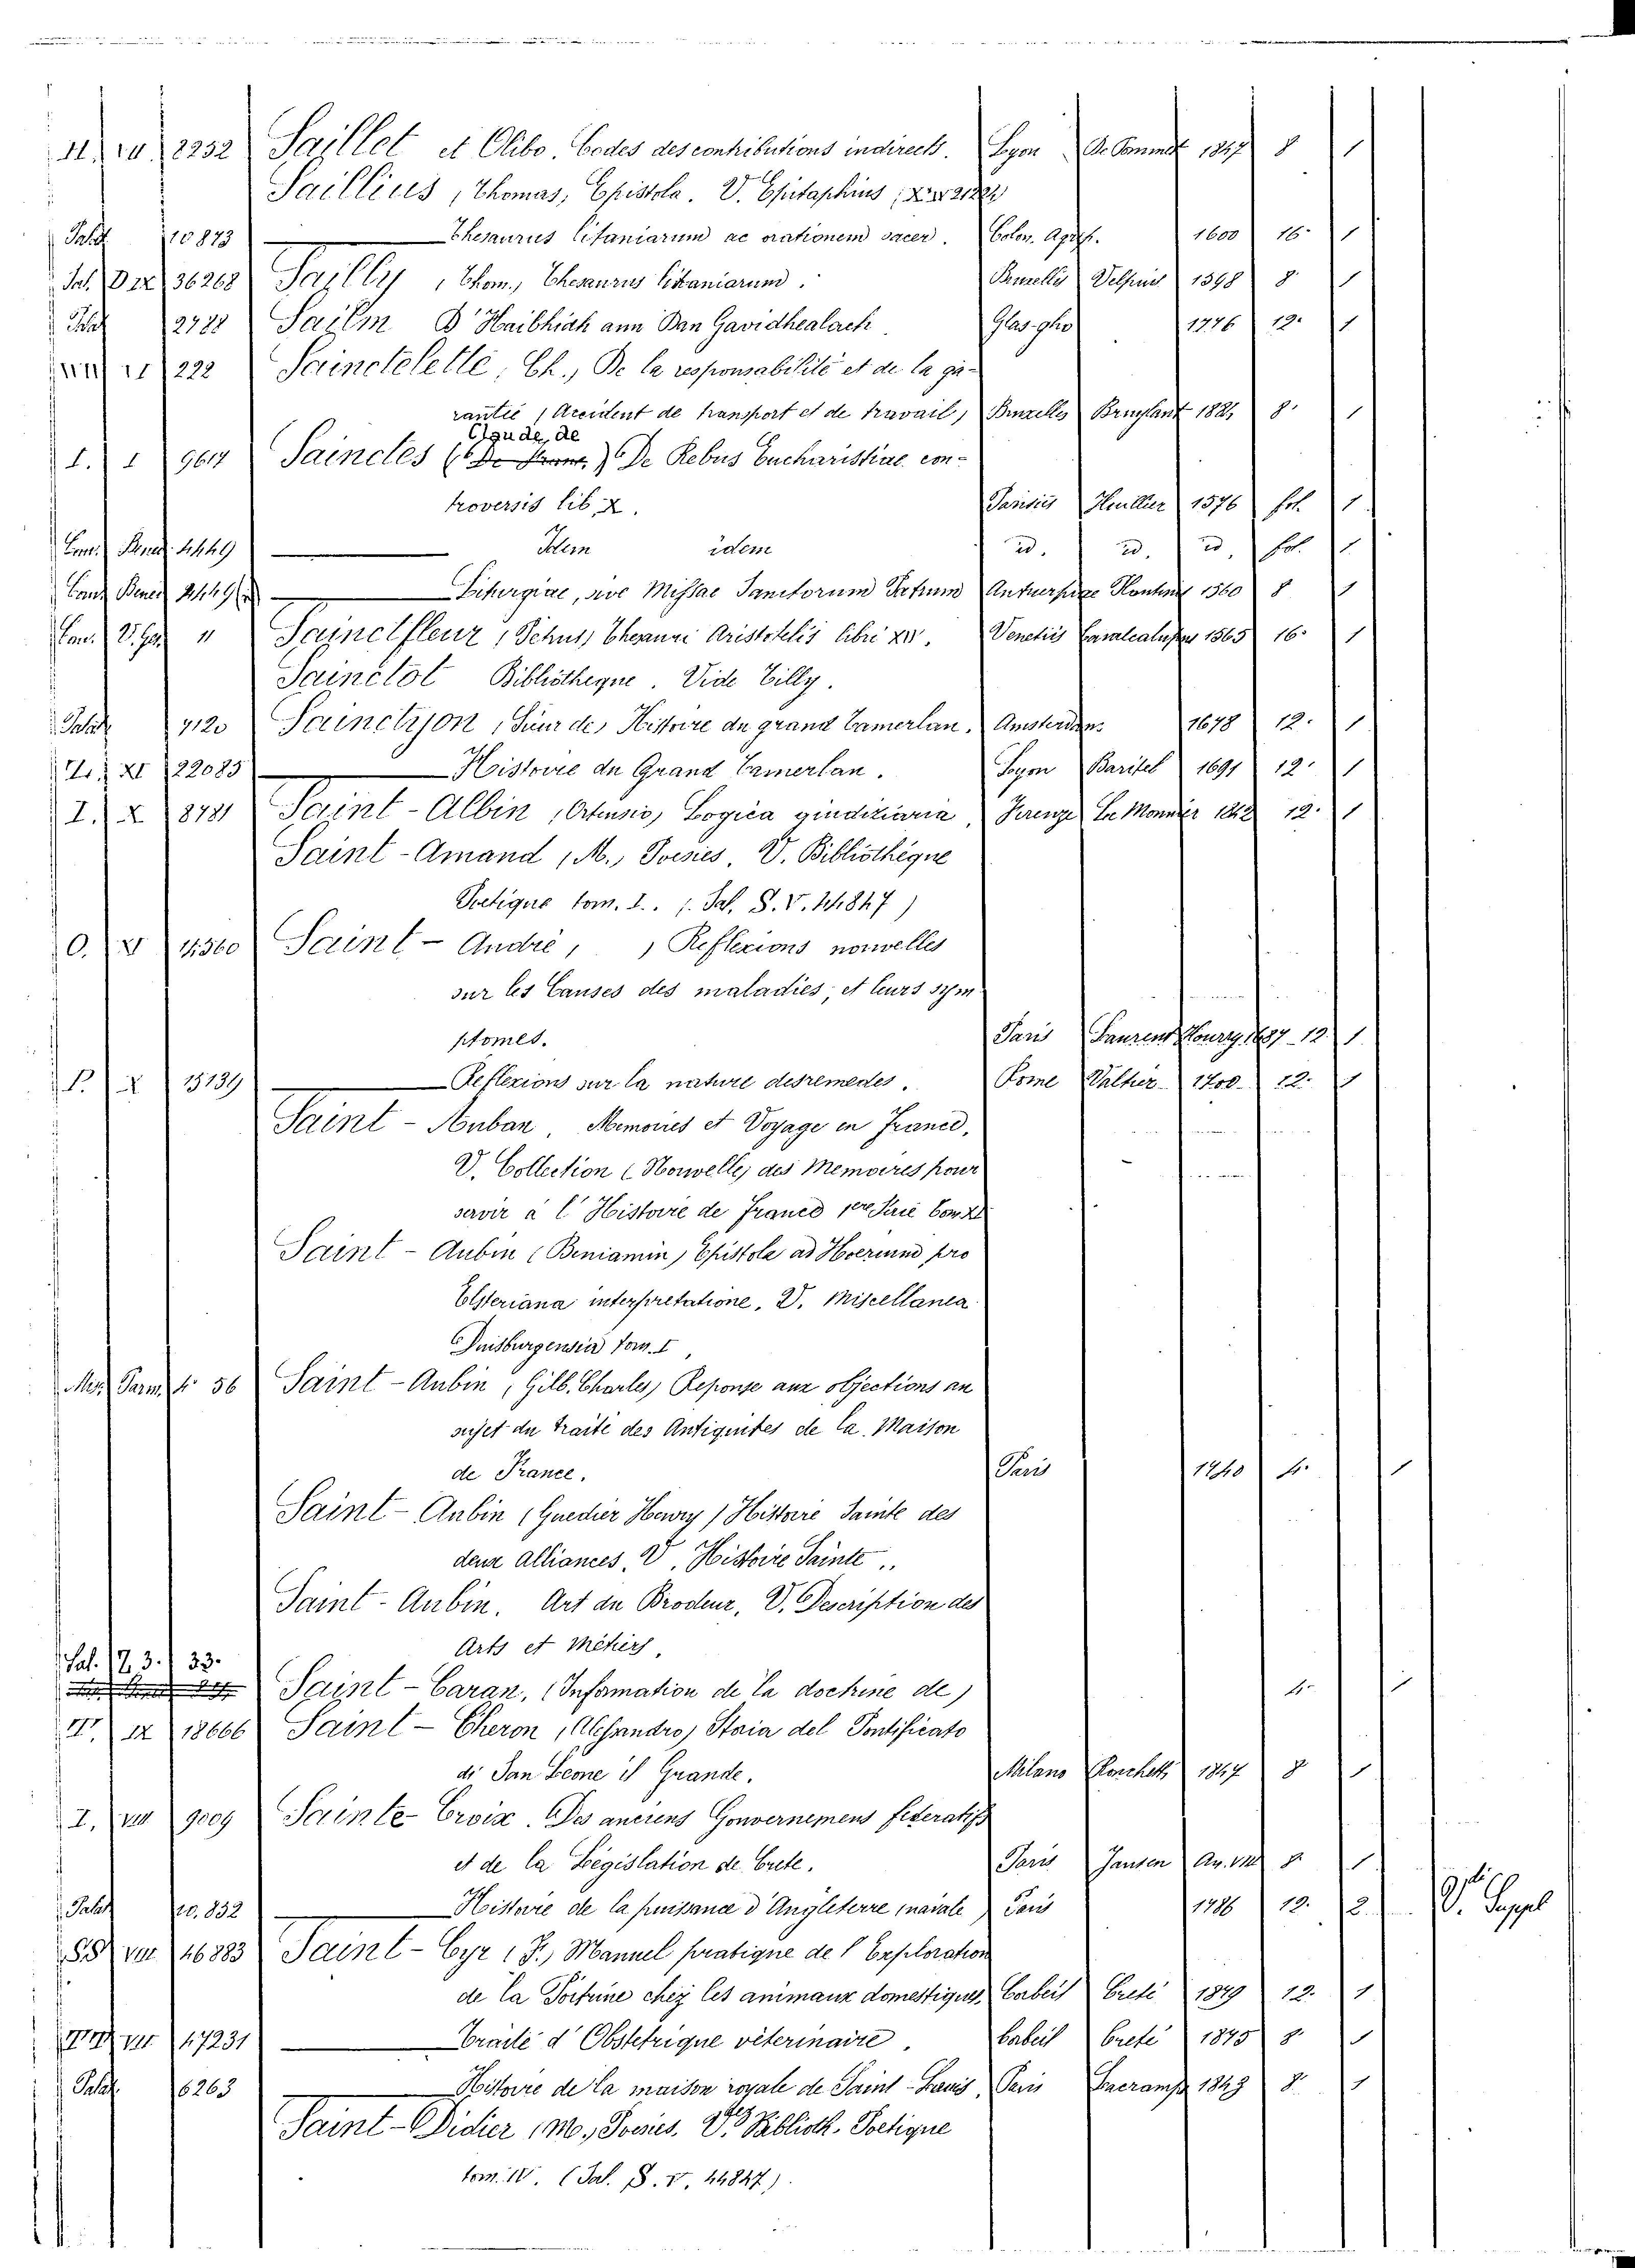 2232 Saillet et Olibo. Codes des contributions indirects. Lyon 1847 8 1
Saillius, Thomas, Epistola. V. Epitaphius
Palat 10873 Thesaurus litaniarum ac orationem sacer. Colon. Agrip. 1600 16. 1
Sal. 36268 Sailly, Thom., Thesaurus litaniarum. Bruxellis Velpius 1598 8. 1
2788 Sailm D' Haibhidh ann Dan Gavidhealach. Glas-gho 1776 12. 1
222 Sainctelette, Ch., De la responsabilité et de la ga-
rantie, Accident de transport et de travail, Bruxelles Bruylant 8. 1
Claude, de
I. I 9617 Sainctes De Rebus Eucharistiae con-
troversis lib. X. Parisiis 1576 fol. 1
Bened. 4449 Idem idem id. id. id. fol. 1
Bened. Liturgiae, sive Missae Sanctorum Patrum Antuerpiae Plantin 1560 8 1
" Sainctfleur, Thesauri Aristotelis libri Venetiis 1565 16. 1
Sainctot Bibliotheque. Vide Tilly.
Palat 7120 Sainctyon, Sieur de, Histoire du grand Tamerlan. Amsterdam 1678 12. 1
XI 22085 Histoire du Grand Tamerlan. Lyon Baritel 1691 12. 1
I. X 8781 Saint-Albin, Ortensio, Logica giudiziaria, Firenze Le Monnier 12. 1
Saint-Amand, M., Poesies, V. Bibliothéque
Poetique tom. I. (Sal. S. V. 44847)
O. XI 4360 Saint-André, Reflexions nouvelles
sur les Causes des maladies, et leurs sym-
ptomes. Paris Laurent Houry 1687 12. 1
P. X 15139 Reflexions sur la nature desremedes. Rome Walther 1700. 12. 1
Saint-Auban, Memoires et Voyage en France,
V. Collection (Nouvelle) des Memoires pour
servir à l'Histoire de France
Saint-Aubin (Beniamin) Epistola ad pro
Elsteriana interpretatione, V. Miscellanea
Duisburgensia tom. I
Parm. 4. 56 Saint-Aubin, Gilb. Charles, Reponse aux objections au
sujet du traité des Antiquités de la Maison
de France. Paris 1740 4. 1
Saint-Aubin (Guedier Henry) Histoire Sainte des
deux alliances, V. Histoire Sainte..
Saint-Aubin. Art du Brodeur, V. Description des
Arts et Métiers.
Sal. 33. Saint-Caran, (Information de la doctrine de) 4. 1
IX 18666 Saint-Cheron, Alessandro, Storia del Pontificato
di San Leone il Grande. Milano Ronchetti 1847 8 1
I. VIII 9009 Sainte-Croix. Des anciens Gouvernemens federatifs
et de la Législation de Crete. Paris Jansen An. VII 8. 1
Palat 10.832 Histoire de la puissance d'Angleterre navale Paris 1786 12. 2 V. Suppl
VIII 46883 Saint-Cyr (F.) Manuel pratique de l'Exploration
de la Poitrine chez les animaux domestiques, Corbeil Creté 1879 12. 1
47231 Traité d'Obstetrique véterinaire. Corbeil Creté 1875 8. 1
Palat 6263 Histoire de la maison royale de Saint-Louis, Paris 8. 1
Saint-Didier, M., Poesies. V. Biblioth. Poétique
tom. IV. (Sal. S. V. 44847).